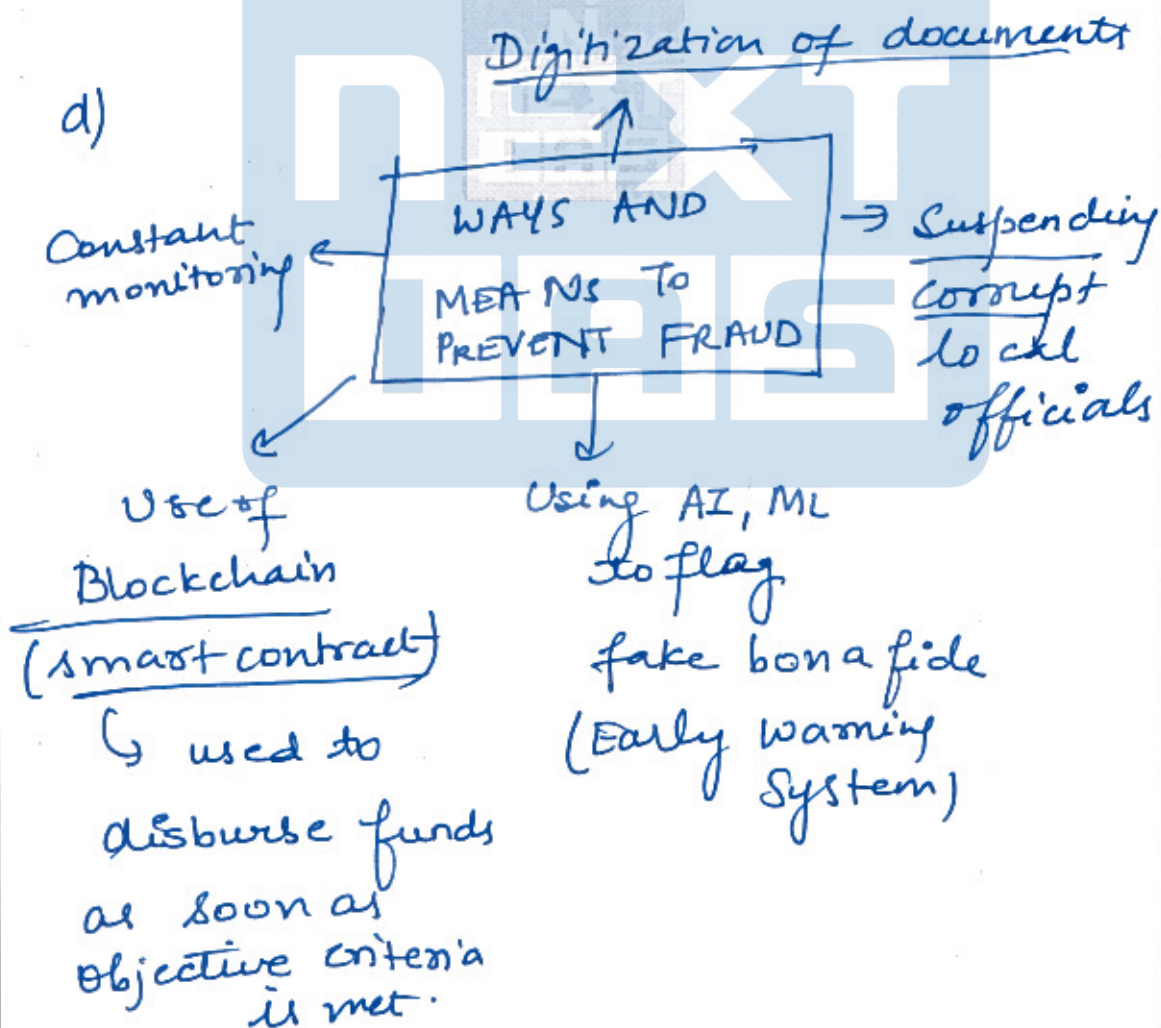 Digitization of documents
d)
WAYS AND
MEANS TO
PREVENT FRAUD
Constant
monitoring
Suspending
corrupt
local
officials
Use of
Blockchain
(smart contract)
used to
disburse funds
as soon as
objective criteria
is met.
Using AI, ML
to flag
fake bonafide
(Early warning
System)
NEXT
IAS